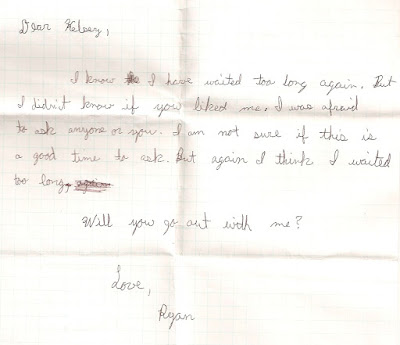 Dear Kelsey,
I know I have waited too long again. But
I didn't know if you liked me. I was afraid
to ask anyone or you. I am not sure if this is
a good time to ask. But again I think I waited
too long, again
Will you go out with me?
Love,
Ryan